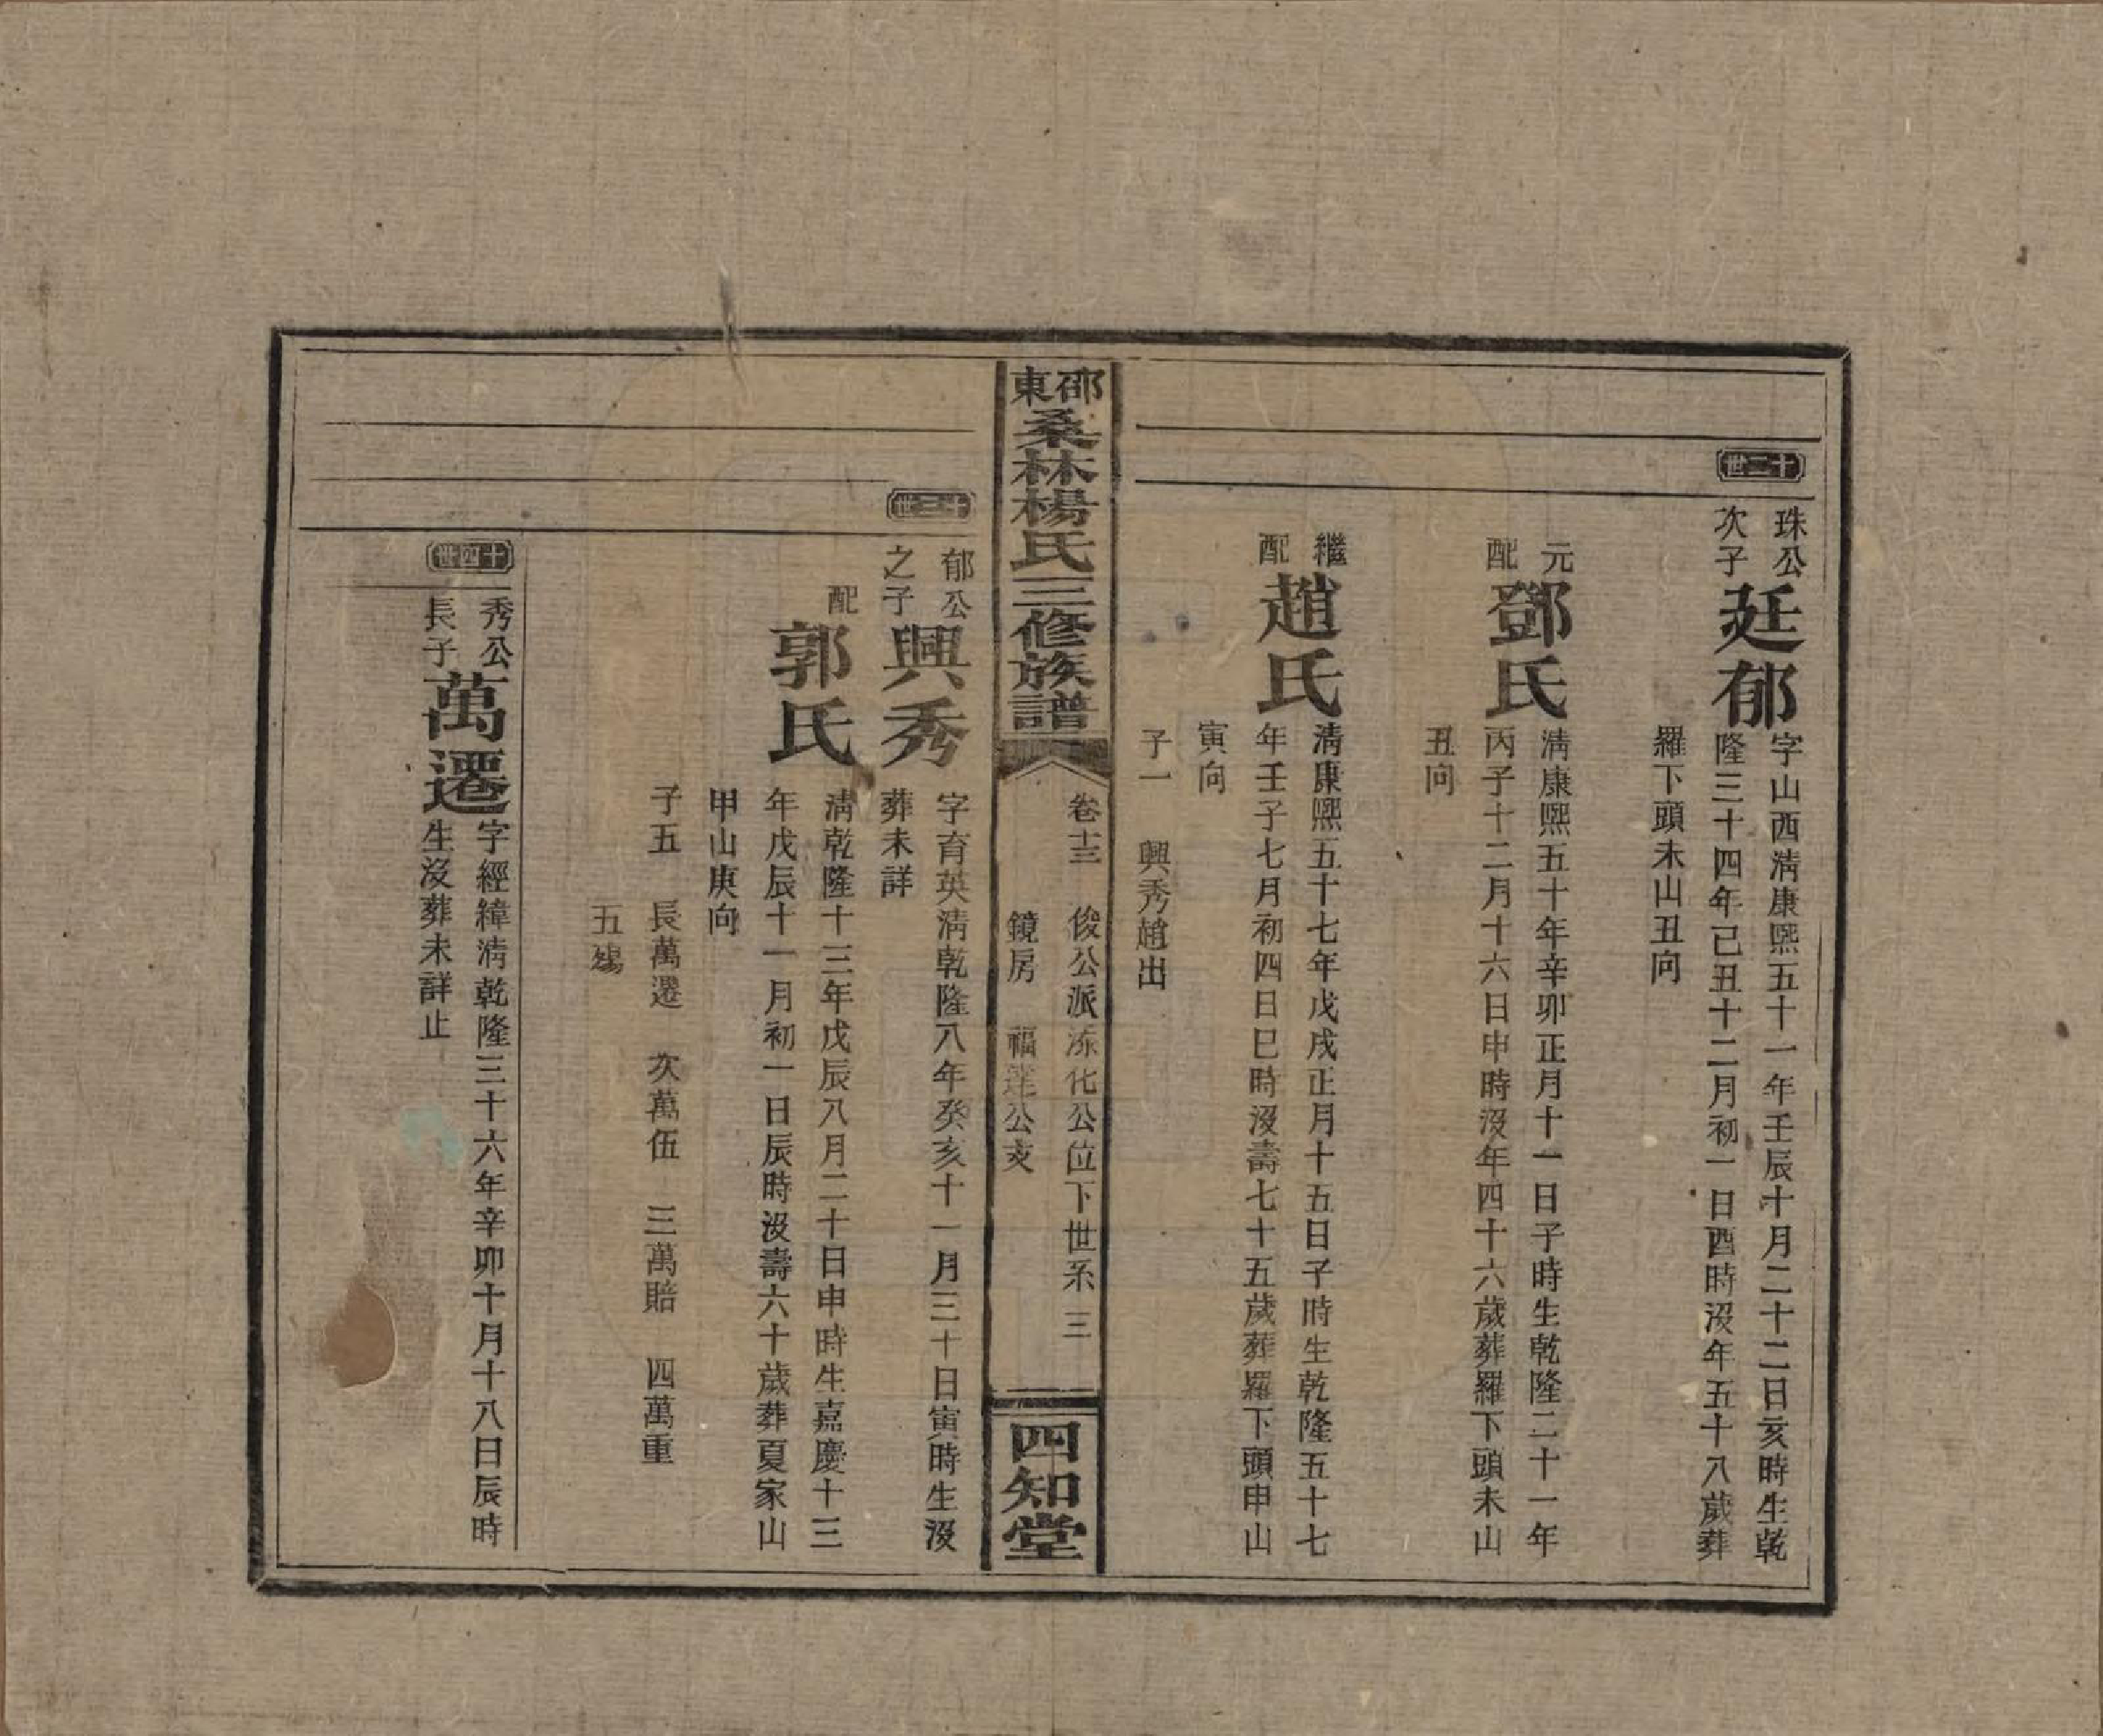 十二世
珠公
次子
廷郁
字山西清康熙五十一年壬辰十月二十二日亥時生乾
隆三十四年己丑十二月初一日酉時沒年五十八歲葬
羅下頭未山丑向
元
配
鄧氏
清康熙五十年辛卯正月十一日子時生乾隆二十一年
丙子十二月十六日申時沒年四十六歲葬羅下頭未山
丑向
繼
配
趙氏
清康熙五十七年戊戌正月十五日子時生乾隆五十七
年壬子七月初四日巳時沒壽七十五歲葬羅下頭申山
寅向
子一 興秀趙出
邵東桑林楊氏三修族譜
卷十三 俊公派添化公位下世系 三
鏡房 福蓮公支
四知堂
十三世
郁公
之子
興秀
字育英清乾隆八年癸亥十一月三十日寅時生沒
葬未詳
配
郭氏
清乾隆十三年戊辰八月二十日申時生嘉慶十三
年戊辰十一月初一日辰時沒壽六十歲葬夏家山
甲山庚向
子五 長萬遷 次萬伍 三萬賠 四萬重
五殤
十四世
秀公
長子
萬遷
字經緯清乾隆三十六年辛卯十月十八日辰時
生沒葬未詳止